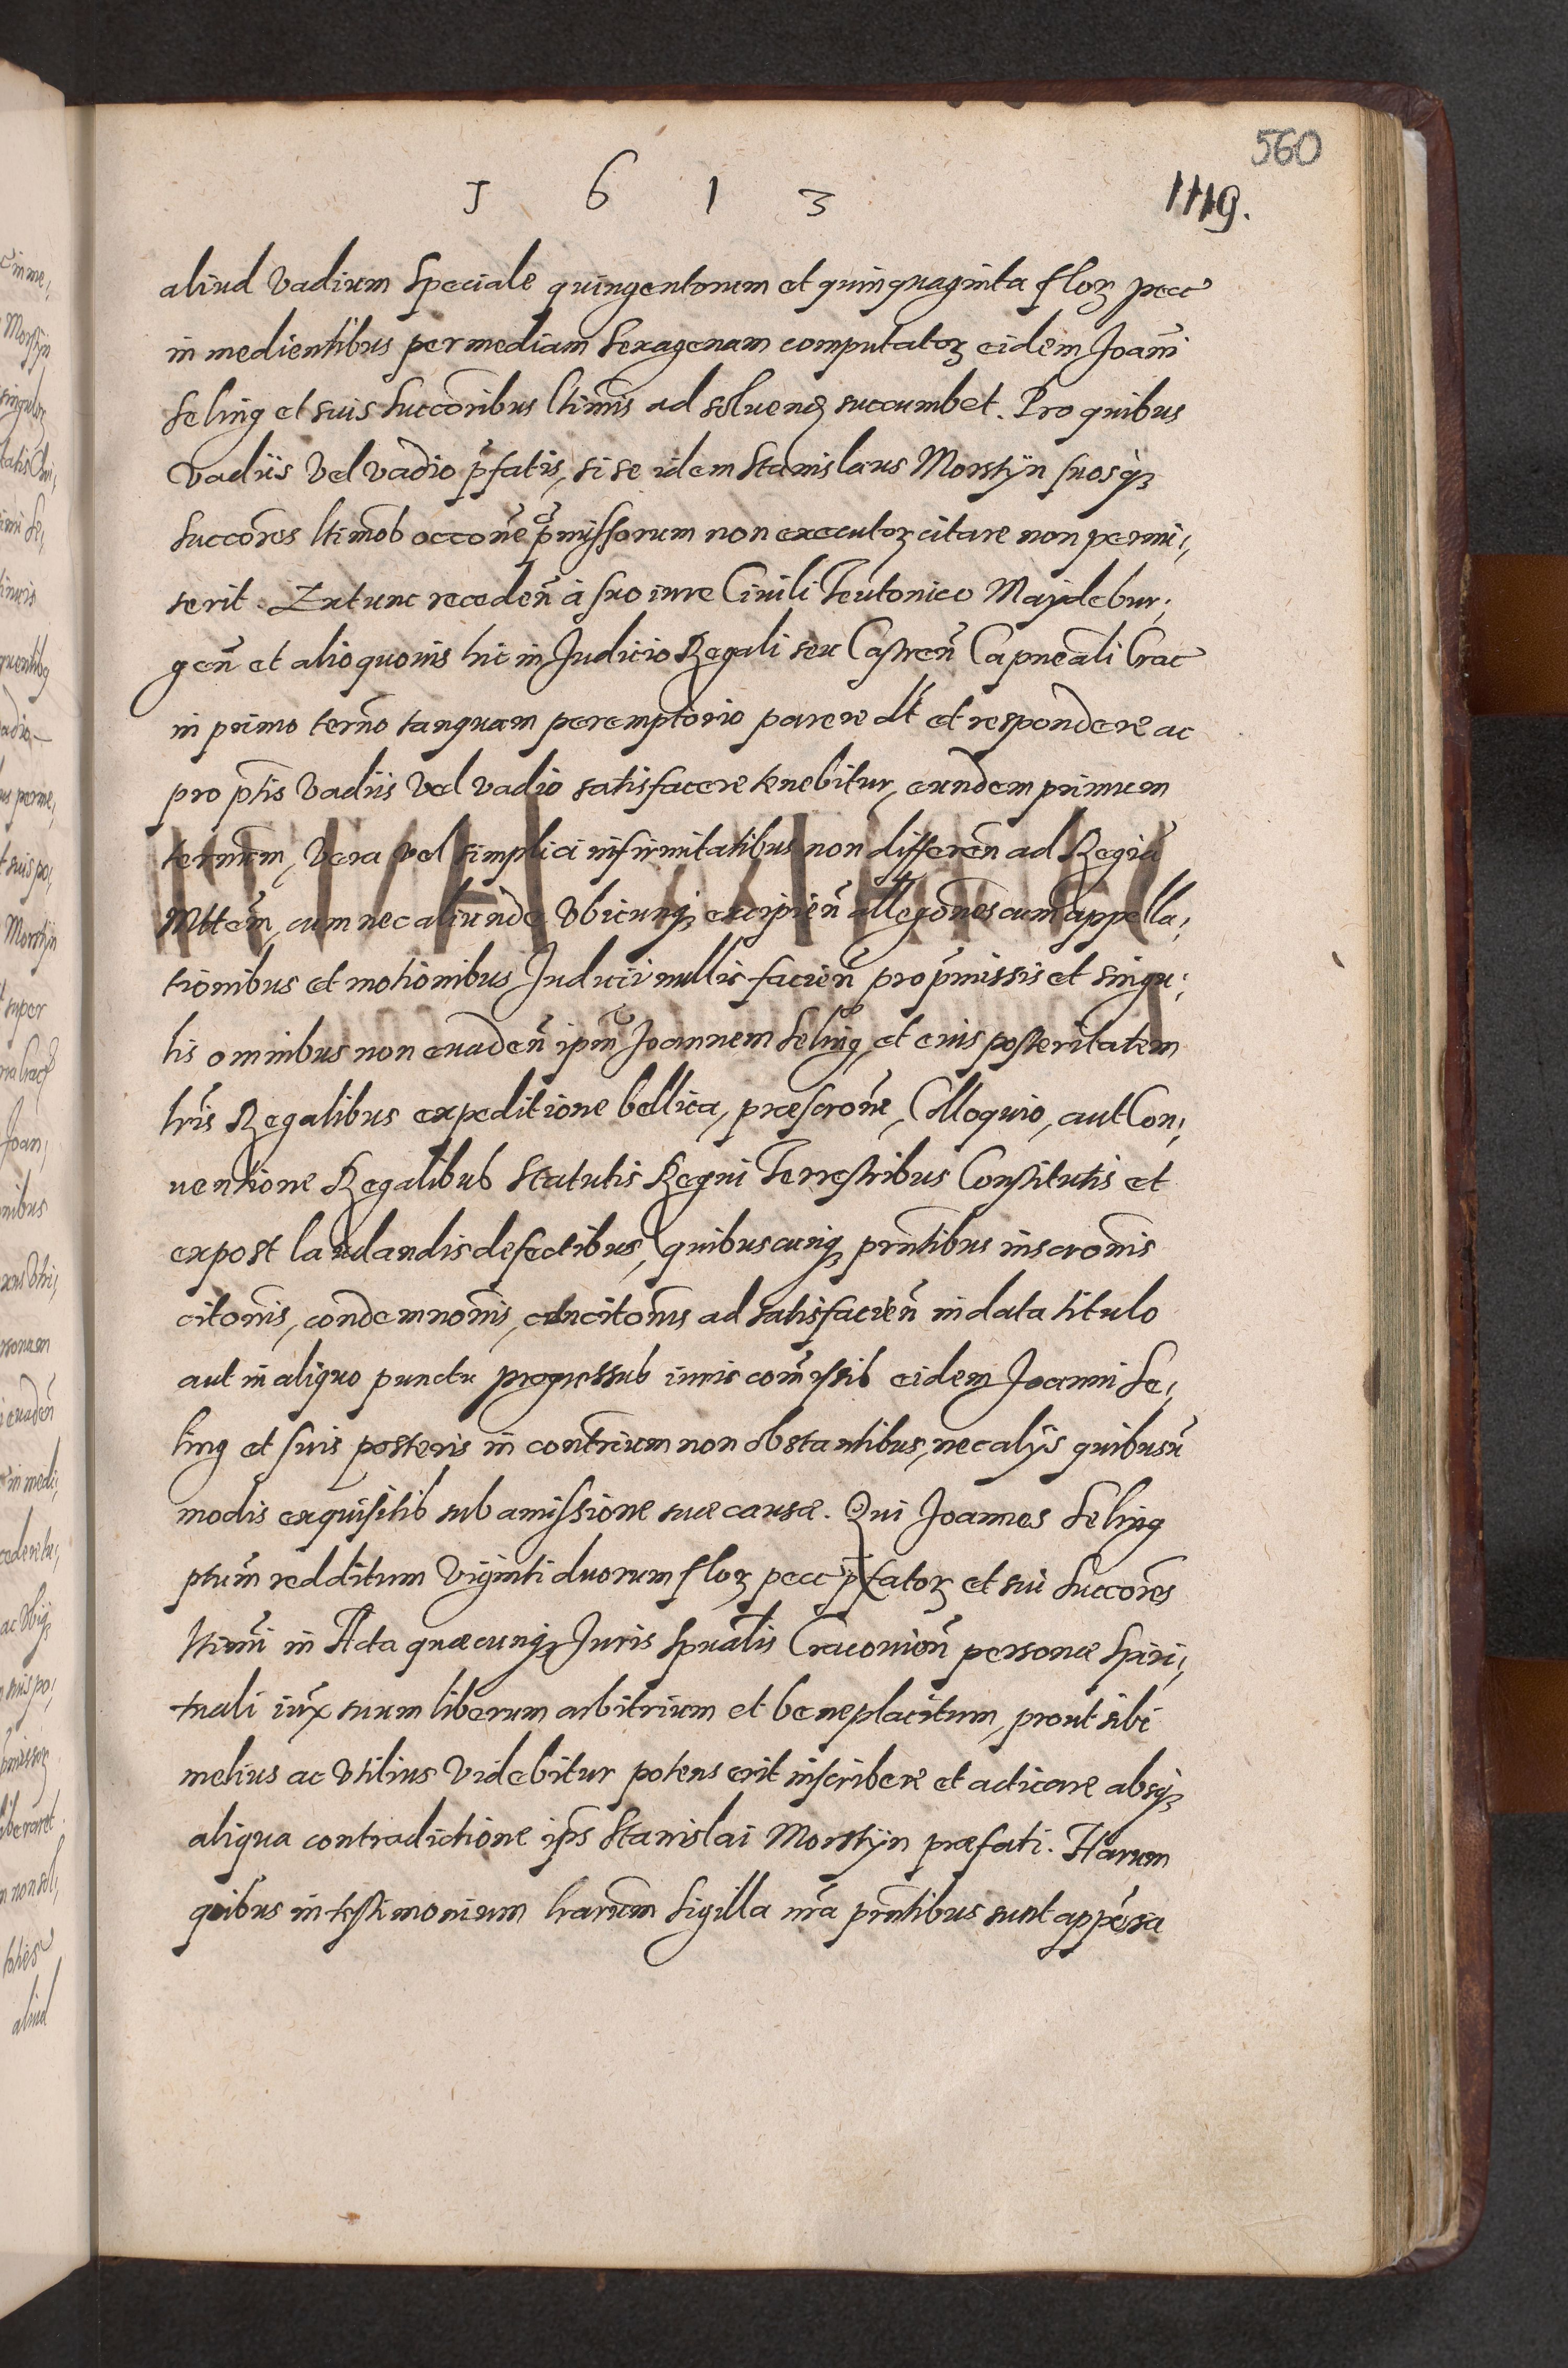 560
1 6 1 3
1119.
aliud Vadium Speciale quingentorum et quinquaginta floꝝ pecc
in medientibus per mediam sexagenam computatoꝝ eidem Joañi
Seling et suis Succoribus ltimis ad soluenꝺ succumbet. Pro quibus
Vadiis Vel vadio p̃fatis, si se idem Stanislaus Morstÿn suosqꝫ
Succores ltimos occone p̃missorum non executoꝝ citare non permi,,
serit. Extunc receden̄ à suo iure Ciuili Teutonico Maydebur,,
gen̄ et alio quouis hic in Judicio Regali seu Castren̄ Capneali Crac
in primo termo tanquam peremptorio parere dt et respondere ac
pro ptis Vadiis Vel vadio satisfacere tenebitur, eundem primum
terminum, Vera vel simplici infirmitatibus non differen̄ ad Regia
Mttem, cum nec aliunde Vbicunqꝫ excipien̄ allegones cum appella,,
tionibus et motionibus Judicii nullis facien̄ pro p̃missis et singu,,
lis omnibus non euaden̄ ipm̄ Joannem Seling, et eius posteritatem
lris Regalibus expeditione bellica, præscrone, Colloquio, aut Con,,
uentione Regalibus Statutis Regni Terrestribus Constitutis et
expost laudandis defectibus, quibuscunqꝫ pñtibus inscronis
citonis, condemnonis, citonis ad satisfacien̄ in data titulo
aut in aliquo punctu progressus iuris com̄issis eidem Joanni Se,,
ling et suis posteris in contrium non obstantibus, nec alÿs quibusū
modis exquisitis sub amissione suæ causæ. Qui Joannes Seling
ptum̄ redditum Viginti duorum floꝝ pecc p̃fatoꝝ et sui Succores
ltimi in Acta quæcunqꝫ Juris Spualis Cracouien̄ personæ Spiri,,
tuali iux̃ suum liberum arbitrium et beneplacitum, prout sibi
melius ac Vtilius Videbitur potens erit inscribere et acticare absqꝫ
aliqua contradictione ips Stanislai Morstÿn præfati. Harum
quibus in testimonium lrarum Sigilla nra pñtibus sunt appensa